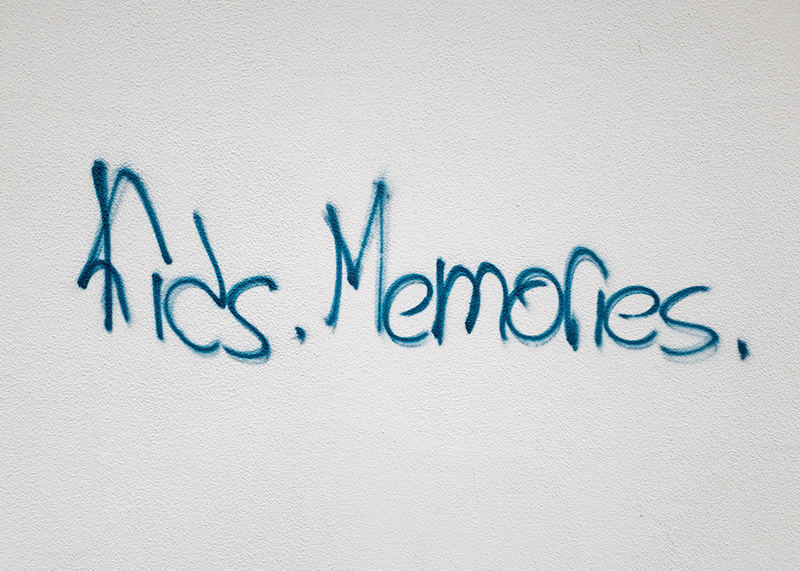 Kids. Memories.